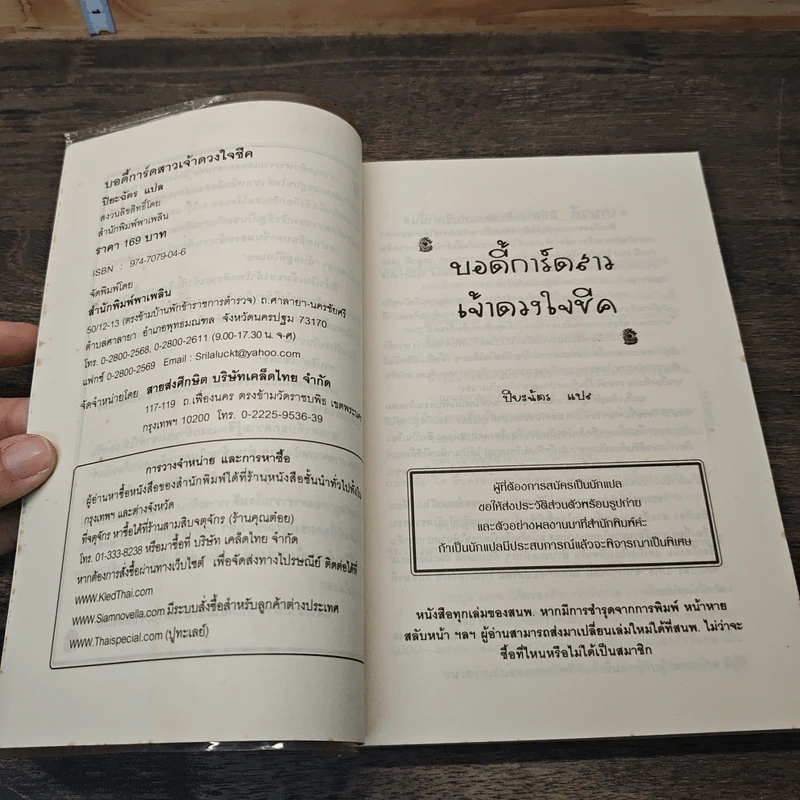 บอดี้การ์ดสาวเจ้าดวงใจชีค
ปิยะฉัตร แปล
สงวนลิขสิทธิ์โดย
สำนักพิมพ์พาเพลิน
ราคา 169 บาท
ISBN : 974-7079-04-6
จัดพิมพ์โดย
สำนักพิมพ์พาเพลิน
50/12-13 (ตรงข้ามบ้านพักข้าราชการตำรวจ) ถ.ศาลายา-นครชัยศรี
ตำบลศาลายา อำเภอพุทธมณฑล จังหวัดนครปฐม 73170
โทร. 0-2800-2568, 0-2800-2611 (9.00-17.30 น. จ-ศ)
แฟกซ์ 0-2800-2569 Email : Srilaluckt@yahoo.com
จัดจำหน่ายโดย สายส่งศึกษิต บริษัทเคล็ดไทย จำกัด
117-119 ถ.เฟื่องนคร ตรงข้ามวัดราชบพิธ เขตพระนคร
กรุงเทพฯ 10200 โทร. 0-2225-9536-39
การวางจำหน่าย และการหาซื้อ
ผู้อ่านหาซื้อหนังสือของสำนักพิมพ์ได้ที่ร้านหนังสือชั้นนำทั่วไปทั้งใน
กรุงเทพฯ และต่างจังหวัด
ที่จตุจักร หาซื้อได้ที่ร้านสามสิบจตุจักร (ร้านคุณต๋อย)
โทร. 01-333-8238 หรือมาซื้อที่ บริษัท เคล็ดไทย จำกัด
หากต้องการสั่งซื้อผ่านทางเว็บไซต์ เพื่อจัดส่งทางไปรษณีย์ ติดต่อได้ที่
www.KledThai.com
www.Siamnovella.com มีระบบสั่งซื้อสำหรับลูกค้าต่างประเทศ
www.Thaispecial.com (ปูทะเลย์)
บอดี้การ์ดสาว
เจ้าดวงใจชีค
ปิยะฉัตร แปล
ผู้ที่ต้องการสมัครเป็นนักแปล
ขอให้ส่งประวัติส่วนตัวพร้อมรูปถ่าย
และตัวอย่างผลงานมาที่สำนักพิมพ์ค่ะ
ถ้าเป็นนักแปลมีประสบการณ์แล้วจะพิจารณาเป็นพิเศษ
หนังสือทุกเล่มของสนพ. หากมีการชำรุดจากการพิมพ์ หน้าหาย
สลับหน้า ฯลฯ ผู้อ่านสามารถส่งมาเปลี่ยนเล่มใหม่ได้ที่สนพ. ไม่ว่าจะ
ซื้อที่ไหนหรือไม่ได้เป็นสมาชิก